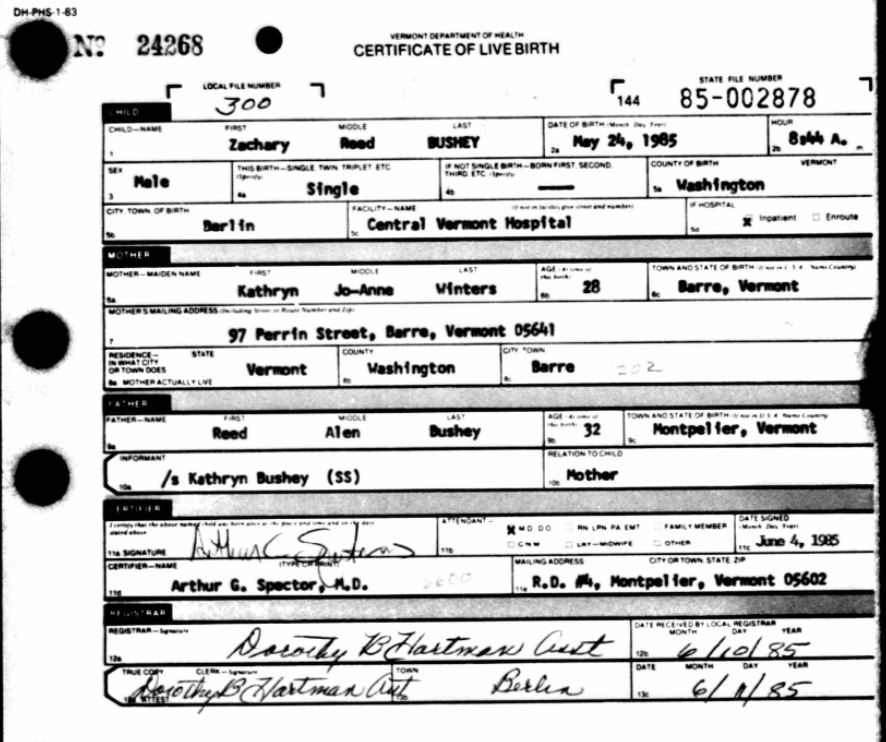 DH-PHS-1-83
Nº 24268
VERMONT DEPARTMENT OF HEALTH
CERTIFICATE OF LIVE BIRTH
LOCAL FILE NUMBER
300
STATE FILE NUMBER
144 85-002878
CHILD
CHILD—NAME FIRST MIDDLE LAST DATE OF BIRTH (Month, Day, Year) HOUR
1 Zachary Reed BUSHEY 2a May 24, 1985 2b 8:44 A. m
SEX THIS BIRTH—SINGLE, TWIN, TRIPLET, ETC. (Specify) IF NOT SINGLE BIRTH—BORN FIRST, SECOND, THIRD, ETC. (Specify) COUNTY OF BIRTH VERMONT
3 Male 4a Single 4b — 5a Washington
CITY, TOWN, OF BIRTH FACILITY—NAME (If not in facility give street and number) IF HOSPITAL
5b Berlin 5c Central Vermont Hospital 5d ☒ Inpatient ☐ Enroute
MOTHER
MOTHER—MAIDEN NAME FIRST MIDDLE LAST AGE (At time of this birth) TOWN AND STATE OF BIRTH (If not in U.S.A. Name Country)
6a Kathryn Jo-Anne Winters 6b 28 6c Barre, Vermont
MOTHER'S MAILING ADDRESS (Including Street or Route Number and Zip)
7 97 Perrin Street, Barre, Vermont 05641
RESIDENCE— IN WHAT CITY OR TOWN DOES STATE COUNTY CITY, TOWN
Vermont 8b Washington 8c Barre 202
8a MOTHER ACTUALLY LIVE
FATHER
FATHER—NAME FIRST MIDDLE LAST AGE (At time of this birth) TOWN AND STATE OF BIRTH (If not in U.S.A. Name Country)
9a Reed Alen Bushey 9b 32 9c Montpelier, Vermont
INFORMANT RELATION TO CHILD
10a /s Kathryn Bushey (SS) 10b Mother
CERTIFIER
I certify that the above named child was born alive at the place and time and on the date stated above ATTENDANT— DATE SIGNED (Month, Day, Year)
☒ M.D. D.O. ☐ RN LPN PA EMT ☐ FAMILY MEMBER
11a SIGNATURE 11b ☐ C N M ☐ LAY—MIDWIFE ☐ OTHER 11c June 4, 1985
CERTIFIER—NAME (TYPE OR PRINT) MAILING ADDRESS CITY OR TOWN, STATE, ZIP
11d Arthur G. Spector, M.D. 6600 11e R.D. #4, Montpelier, Vermont 05602
REGISTRAR
REGISTRAR—Signature DATE RECEIVED BY LOCAL REGISTRAR
MONTH DAY YEAR
12a Dorothy B Hartman Asst 12b 6/10/85
TRUE COPY CLERK—Signature TOWN DATE MONTH DAY YEAR
13a ATTEST Dorothy B Hartman Asst 13b Berlin 13c 6/11/85